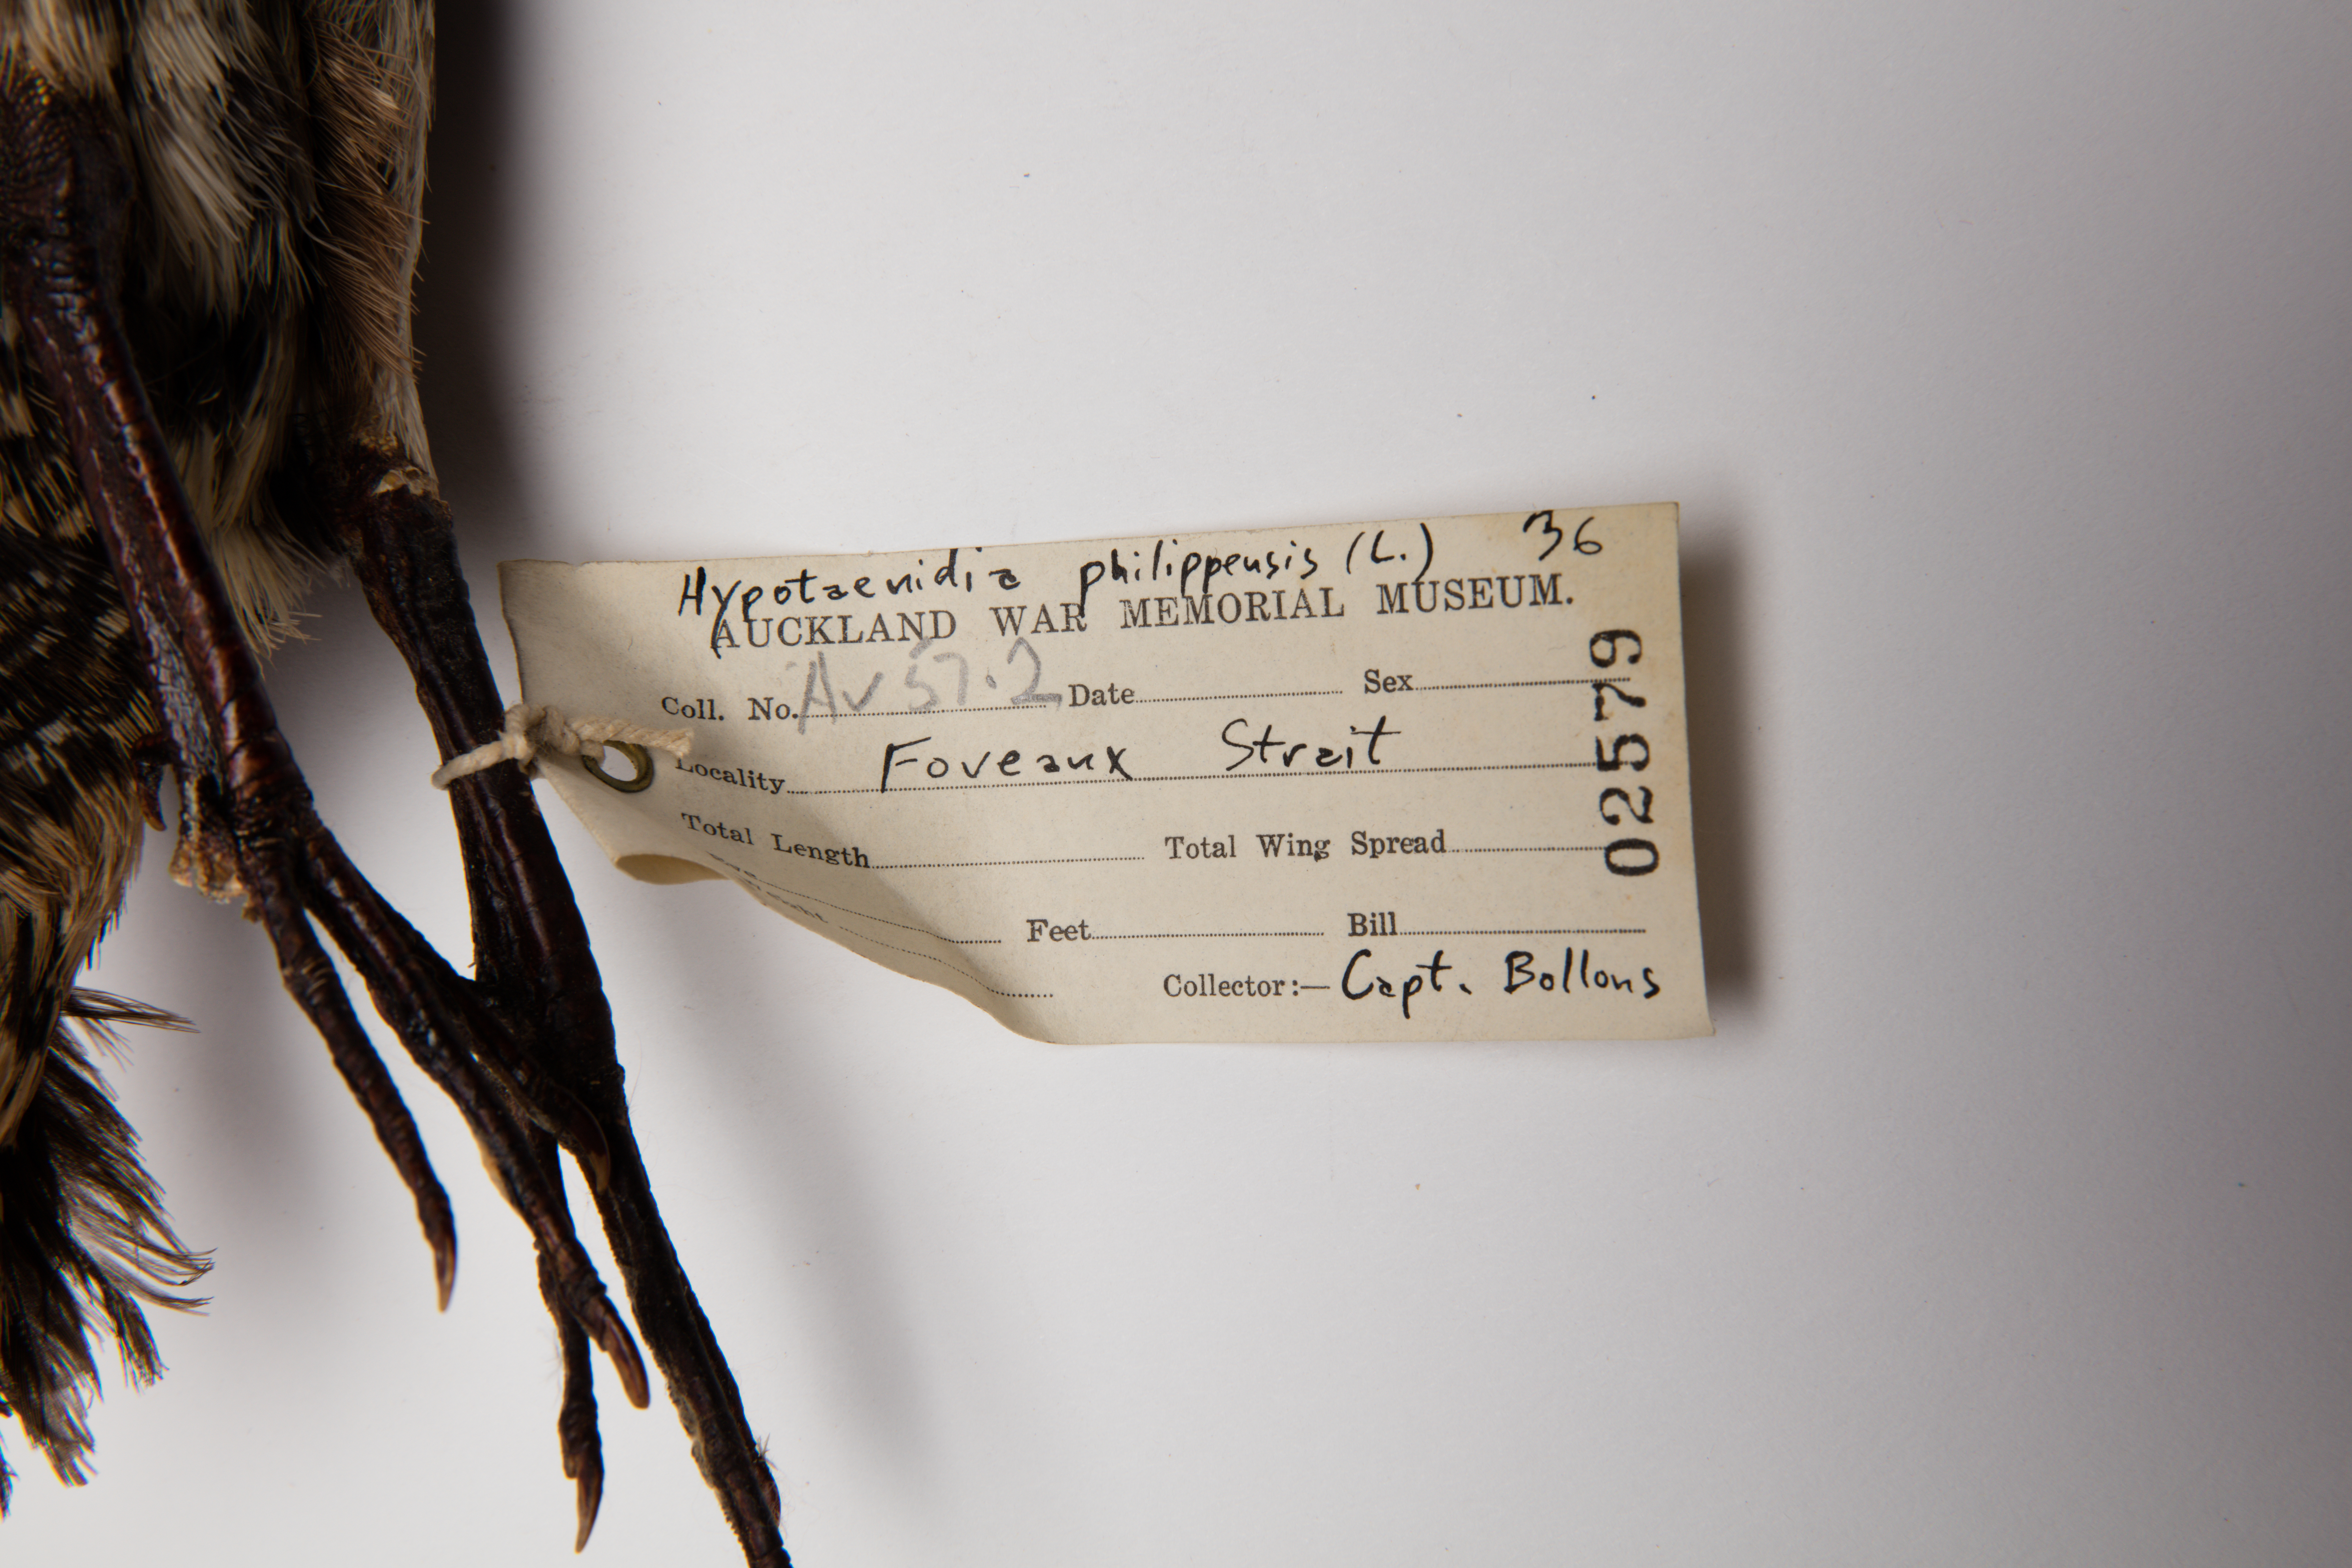 Hypotaenidia philippensis (L.) 36
AUCKLAND WAR MEMORIAL MUSEUM.
Coll. No. Av 57.2 Date Sex
Locality Foveaux Strait
Total Length Total Wing Spread
Feet Bill
Collector:— Capt. Bollons
02579